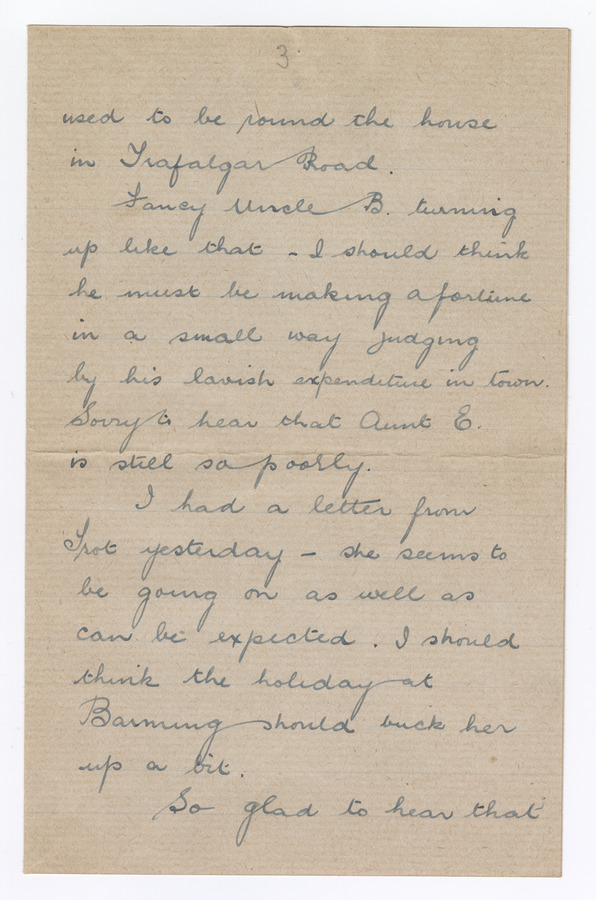 3
used to be round the house
in Trafalgar Road.
Fancy Uncle B. turning
up like that - I should think
he must be making a fortune
in a small way judging
by his lavish expenditure in town.
Sorry to hear that Aunt E.
is still so poorly.
I had a letter from
Trot yesterday - she seems to
be going on as well as
can be expected. I should
think the holiday at
Barming should buck her
up a bit.
So glad to hear that